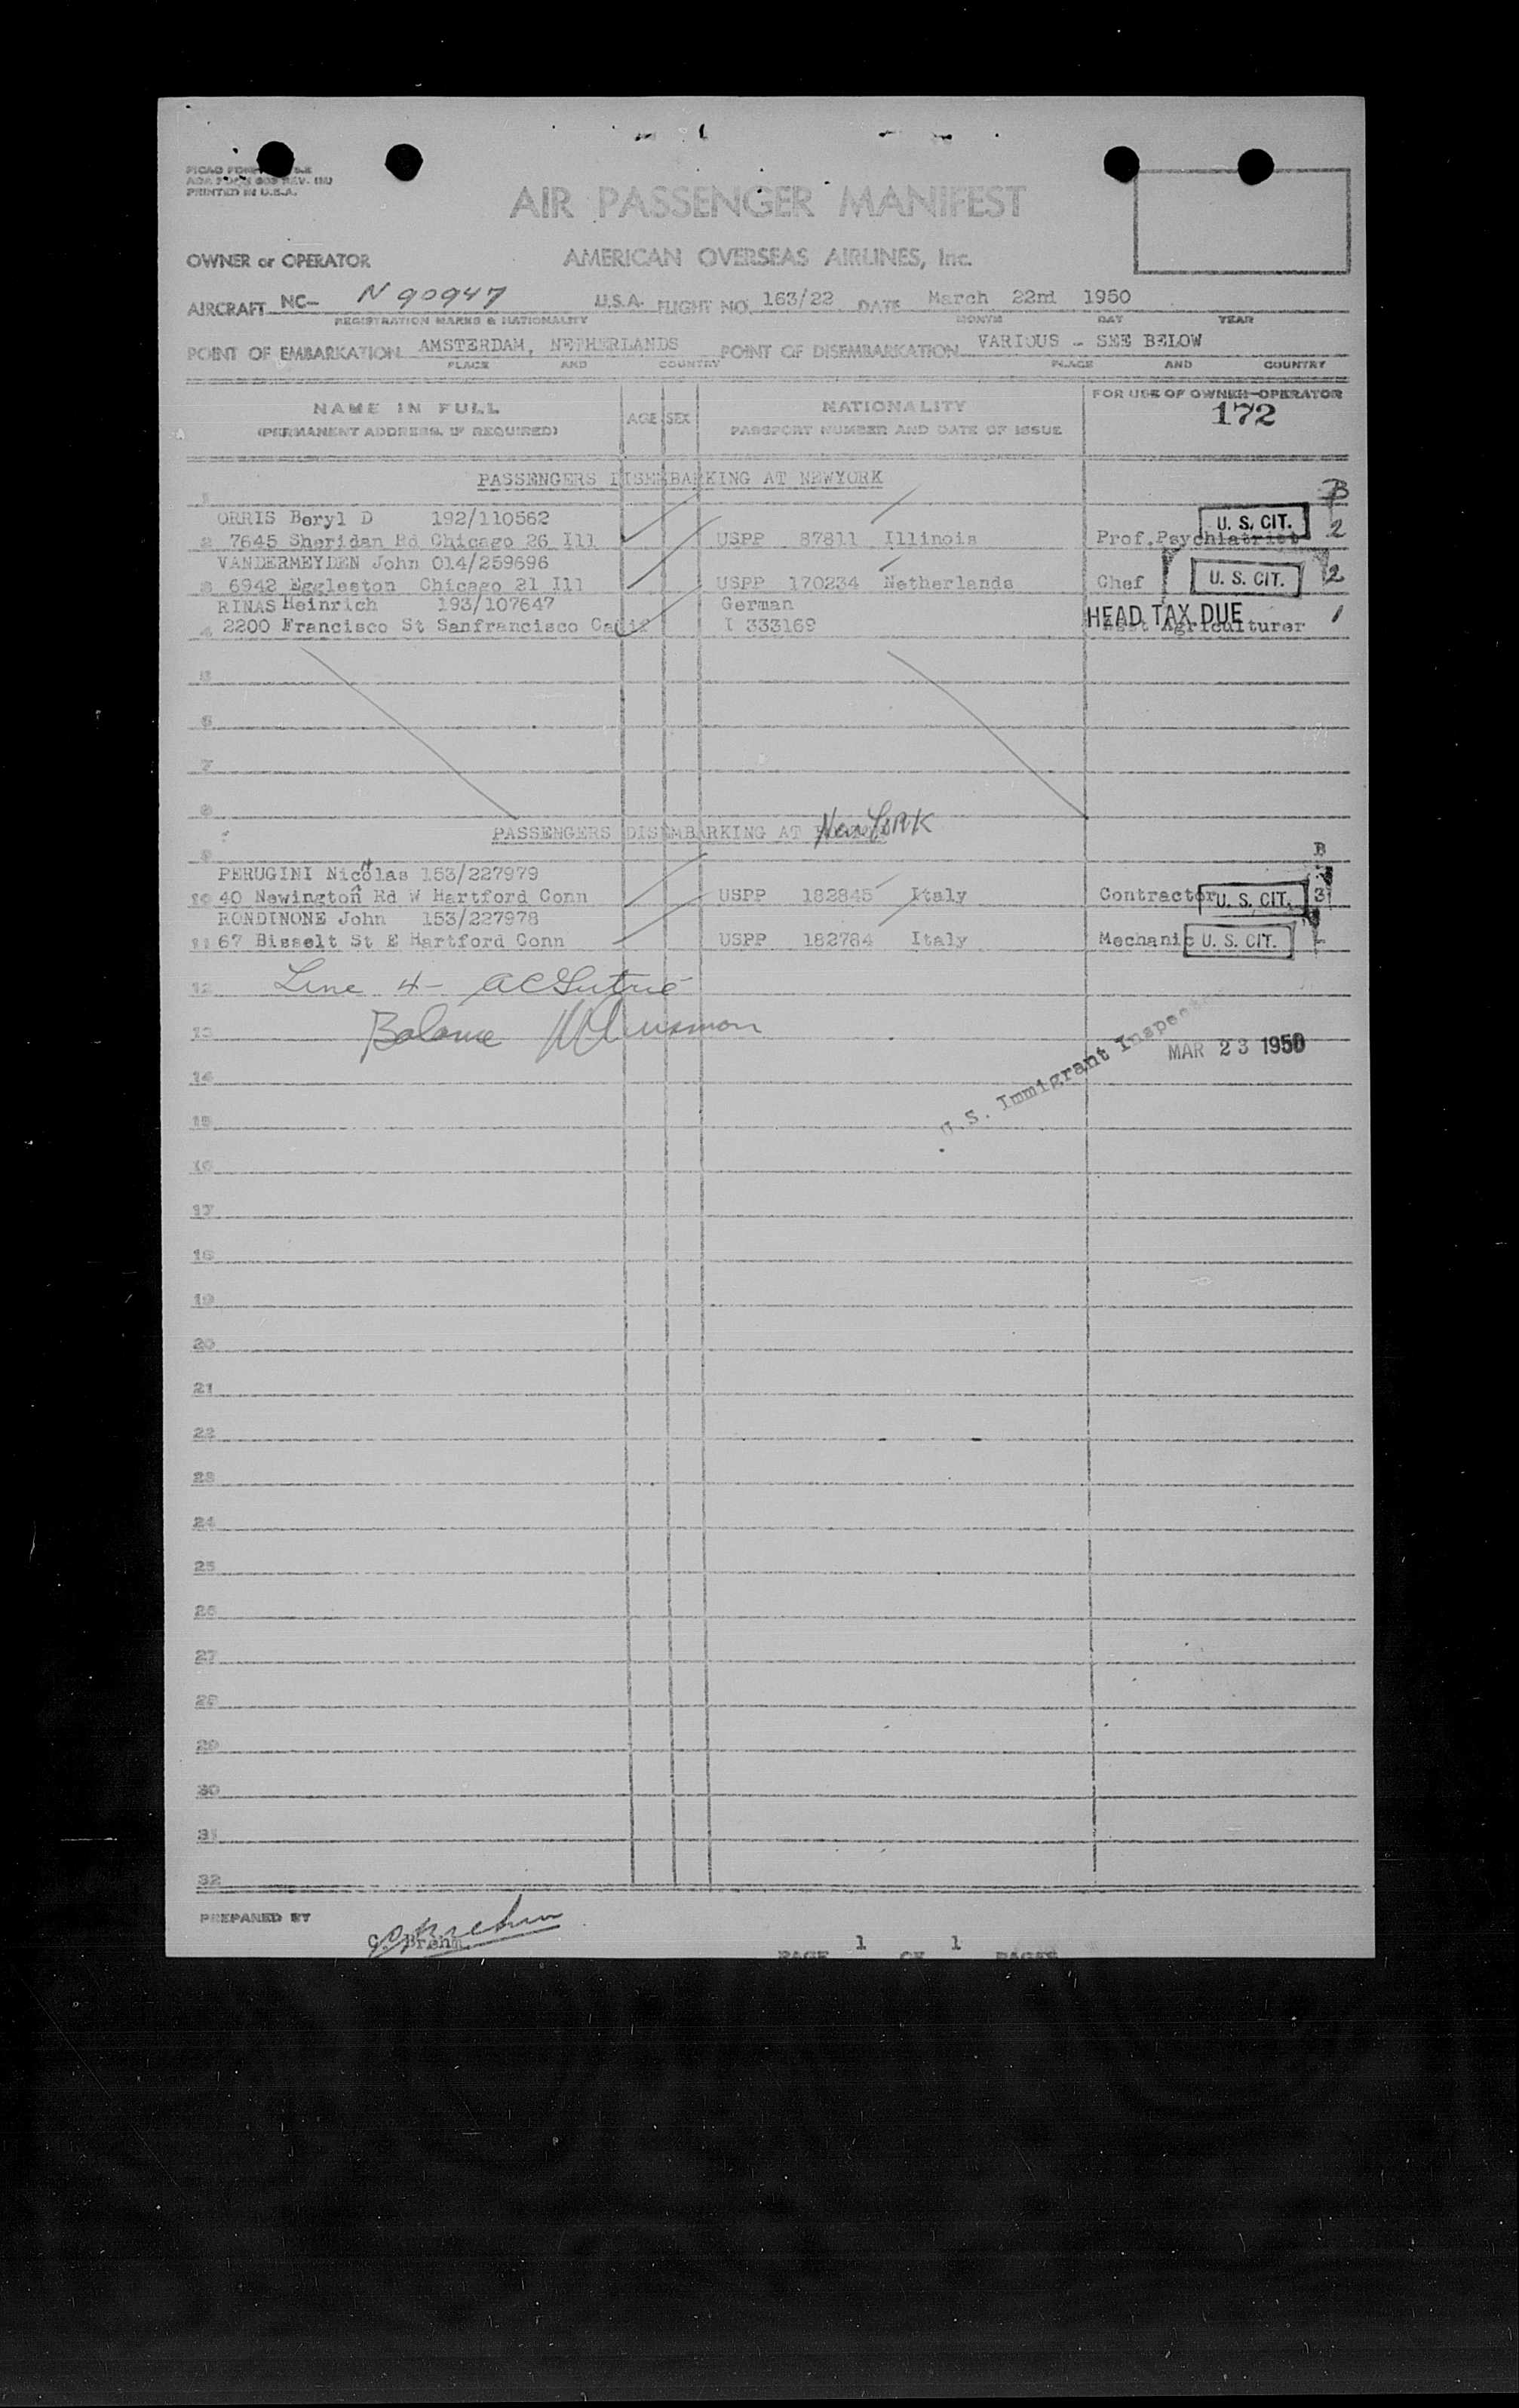 PRINTED IN U.S.A.
AIR PASSENGER MANIFEST
OWNER or OPERATOR AMERICAN OVERSEAS AIRLINES, Inc.
AIRCRAFT NC- N 90947 U.S.A. FLIGHT NO. 163/22 DATE March 22nd 1950
REGISTRATION MARKS & NATIONALITY MONTH DAY YEAR
POINT OF EMBARKATION AMSTERDAM, NETHERLANDS POINT OF DISEMBARKATION VARIOUS - SEE BELOW
PLACE AND COUNTRY PLACE AND COUNTRY
NAME IN FULL AGE SEX NATIONALITY FOR USE OF OWNER-OPERATOR
(PERMANENT ADDRESS, IF REQUIRED) PASSPORT NUMBER AND DATE OF ISSUE 172
PASSENGERS DISEMBARKING AT NEWYORK
1 B
ORRIS Beryl D 192/110562 U. S. CIT. 2
2 7645 Sheridan Rd Chicago 26 Ill USPP 87811 Illinois Prof.Psychiatrist
VANDERMEYDEN John 014/259696
3 6942 Eggleston Chicago 21 Ill USPP 170234 Netherlands Chef U. S. CIT. 2
RINAS Heinrich 193/107647 German HEAD TAX DUE
4 2200 Francisco St Sanfrancisco Calif I 333169 Agriculturer 1
5
6
7
8
PASSENGERS DISEMBARKING AT New York
9 B
PERUGINI Nicolas 153/227979
10 40 Newington Rd W Hartford Conn USPP 182845 Italy Contractor U. S. CIT. 3
RONDINONE John 153/227978
11 67 Bisselt St E Hartford Conn USPP 182784 Italy Mechanic U. S. CIT.
12 Line 4-
13 Balance
U.S. Immigrant Inspector MAR 23 1950
14
15
16
17
18
19
20
21
22
23
24
25
26
27
28
29
30
31
32
PREPARED BY
G. Brehm
PAGE 1 OF 1 PAGES